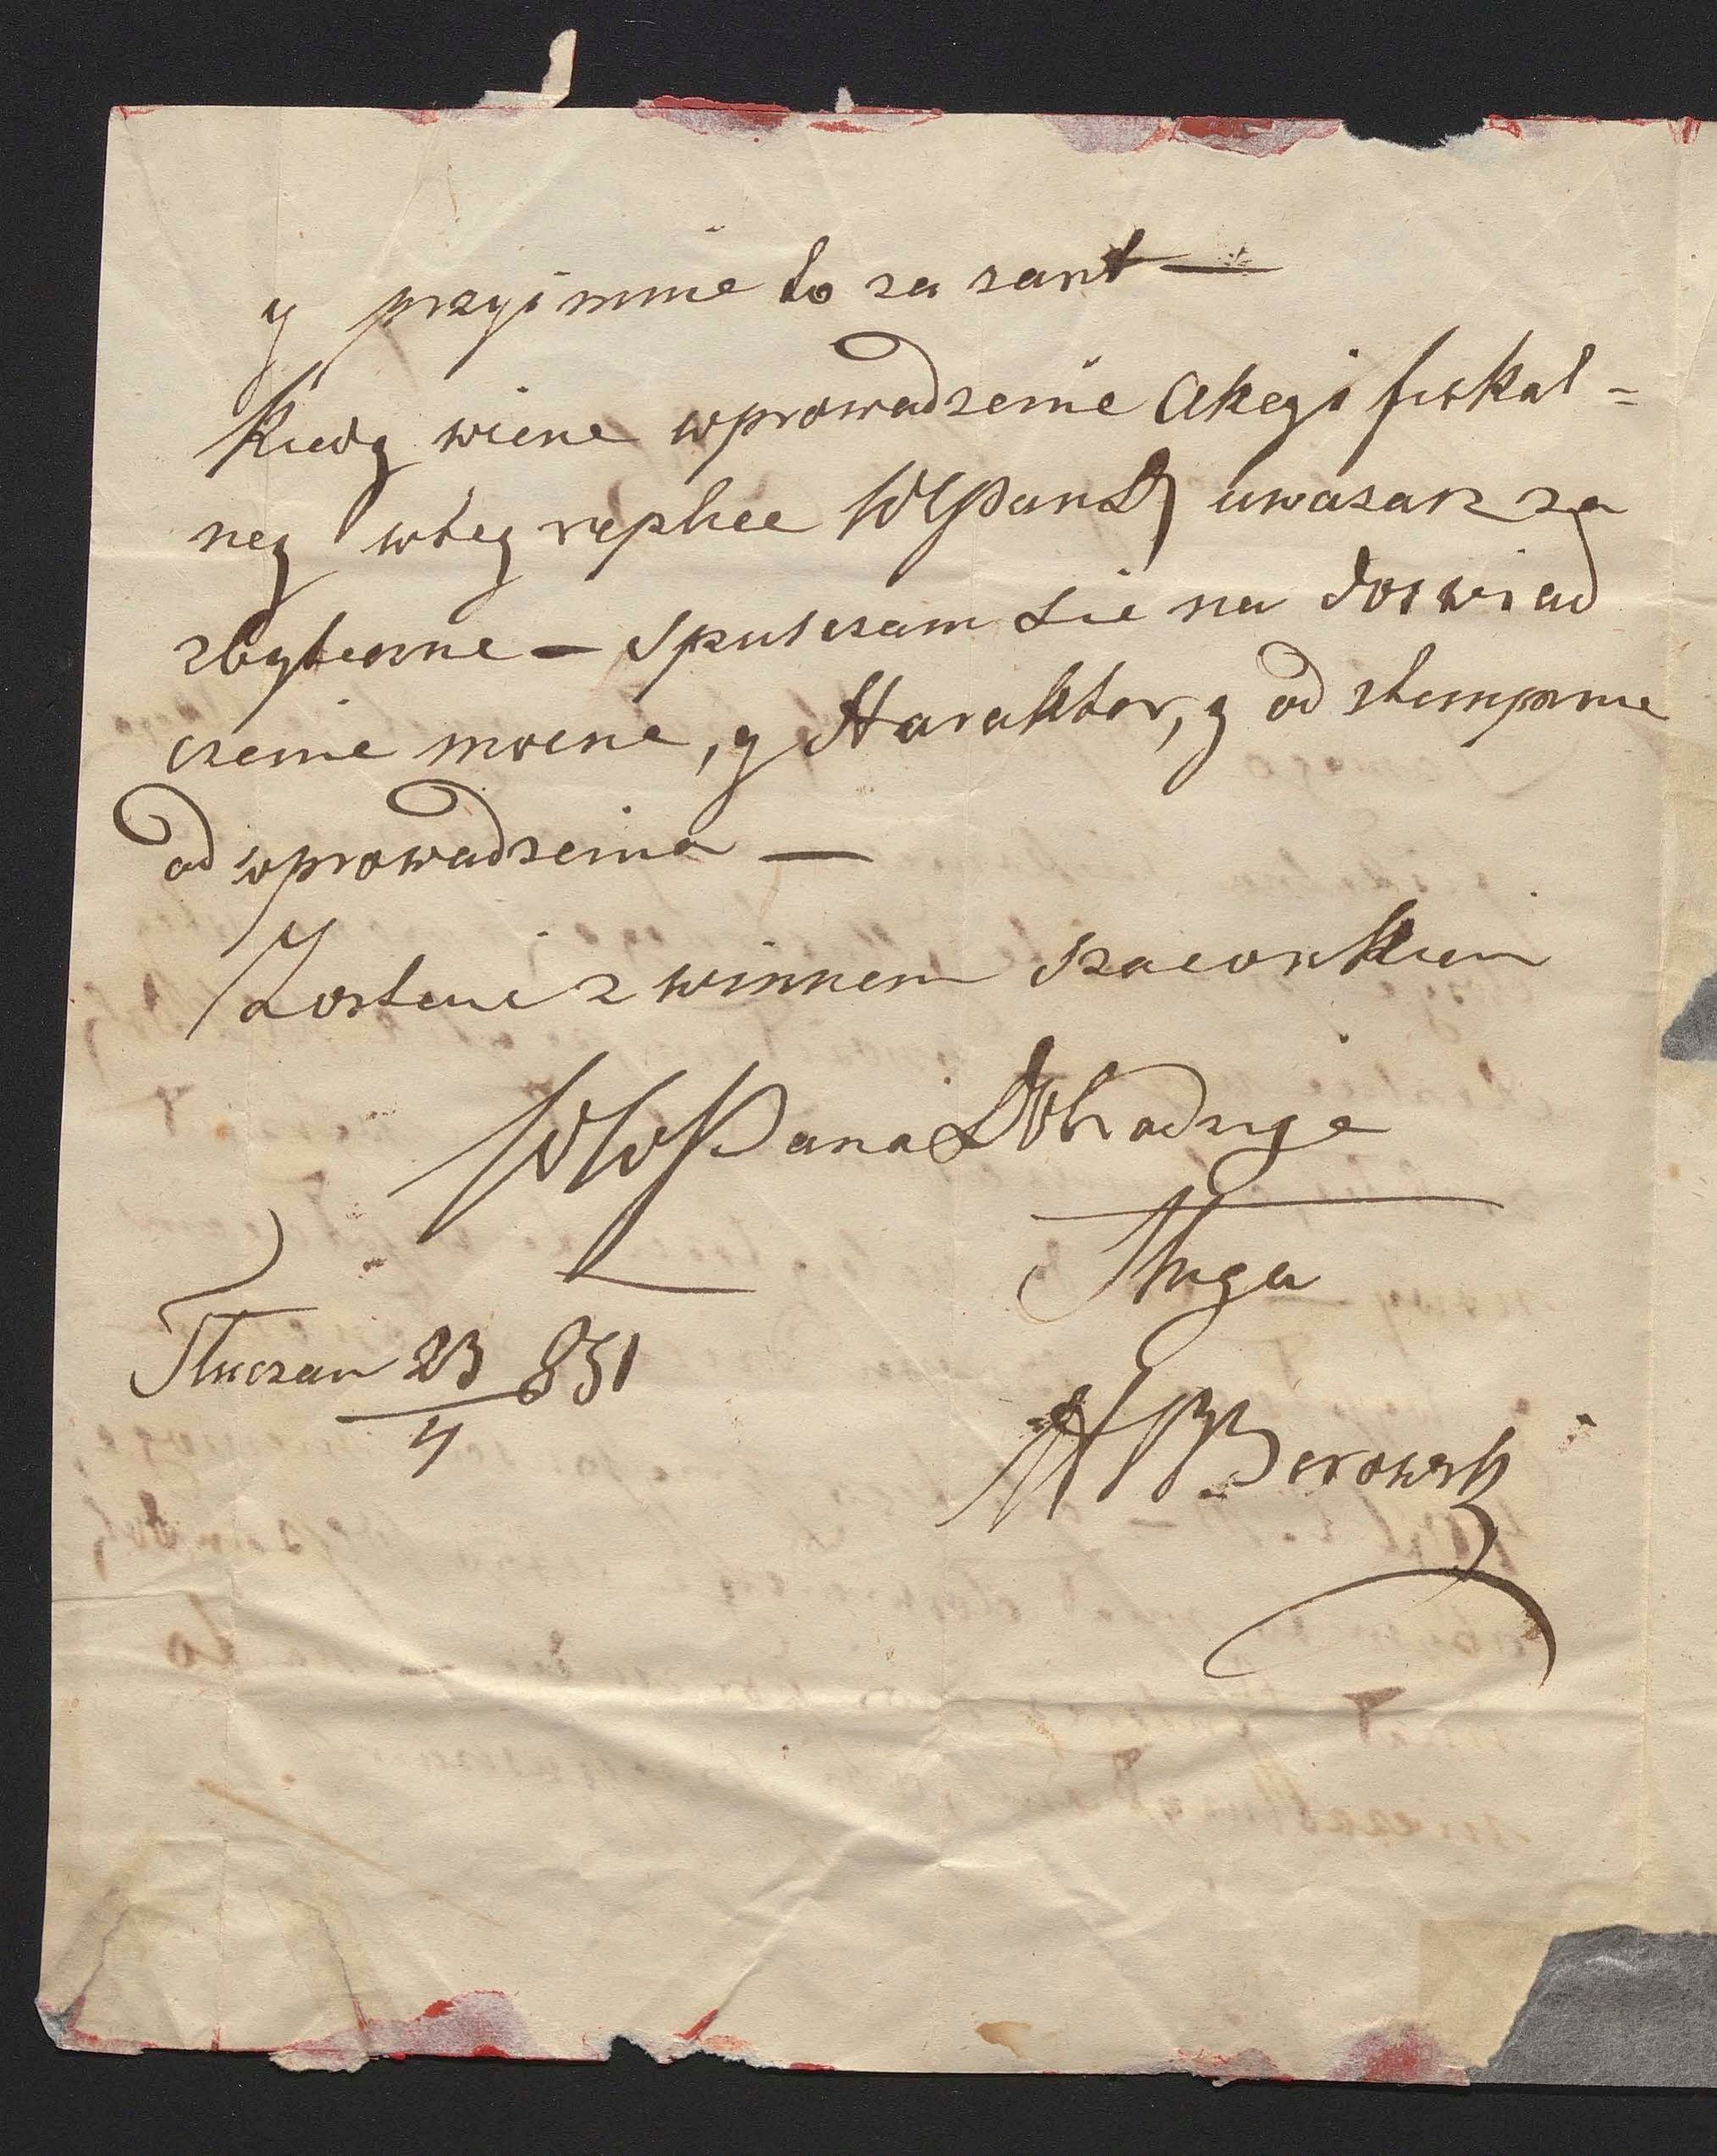 y przyimnie to za zart —
Kiedy wiene wprowadzenie Akcyi fiskal=
ney wtey replice WPan D uwazasz za
zbyteczne — Spusczam sie na doswiad
czenie mocne, y Harakter, y odstempnie
od wprowadzenia —
Zostaie z winnem szacunkiem
WW Pana Dobrodzieja
Sługa
Tłuczan 23/4 851
Borowski